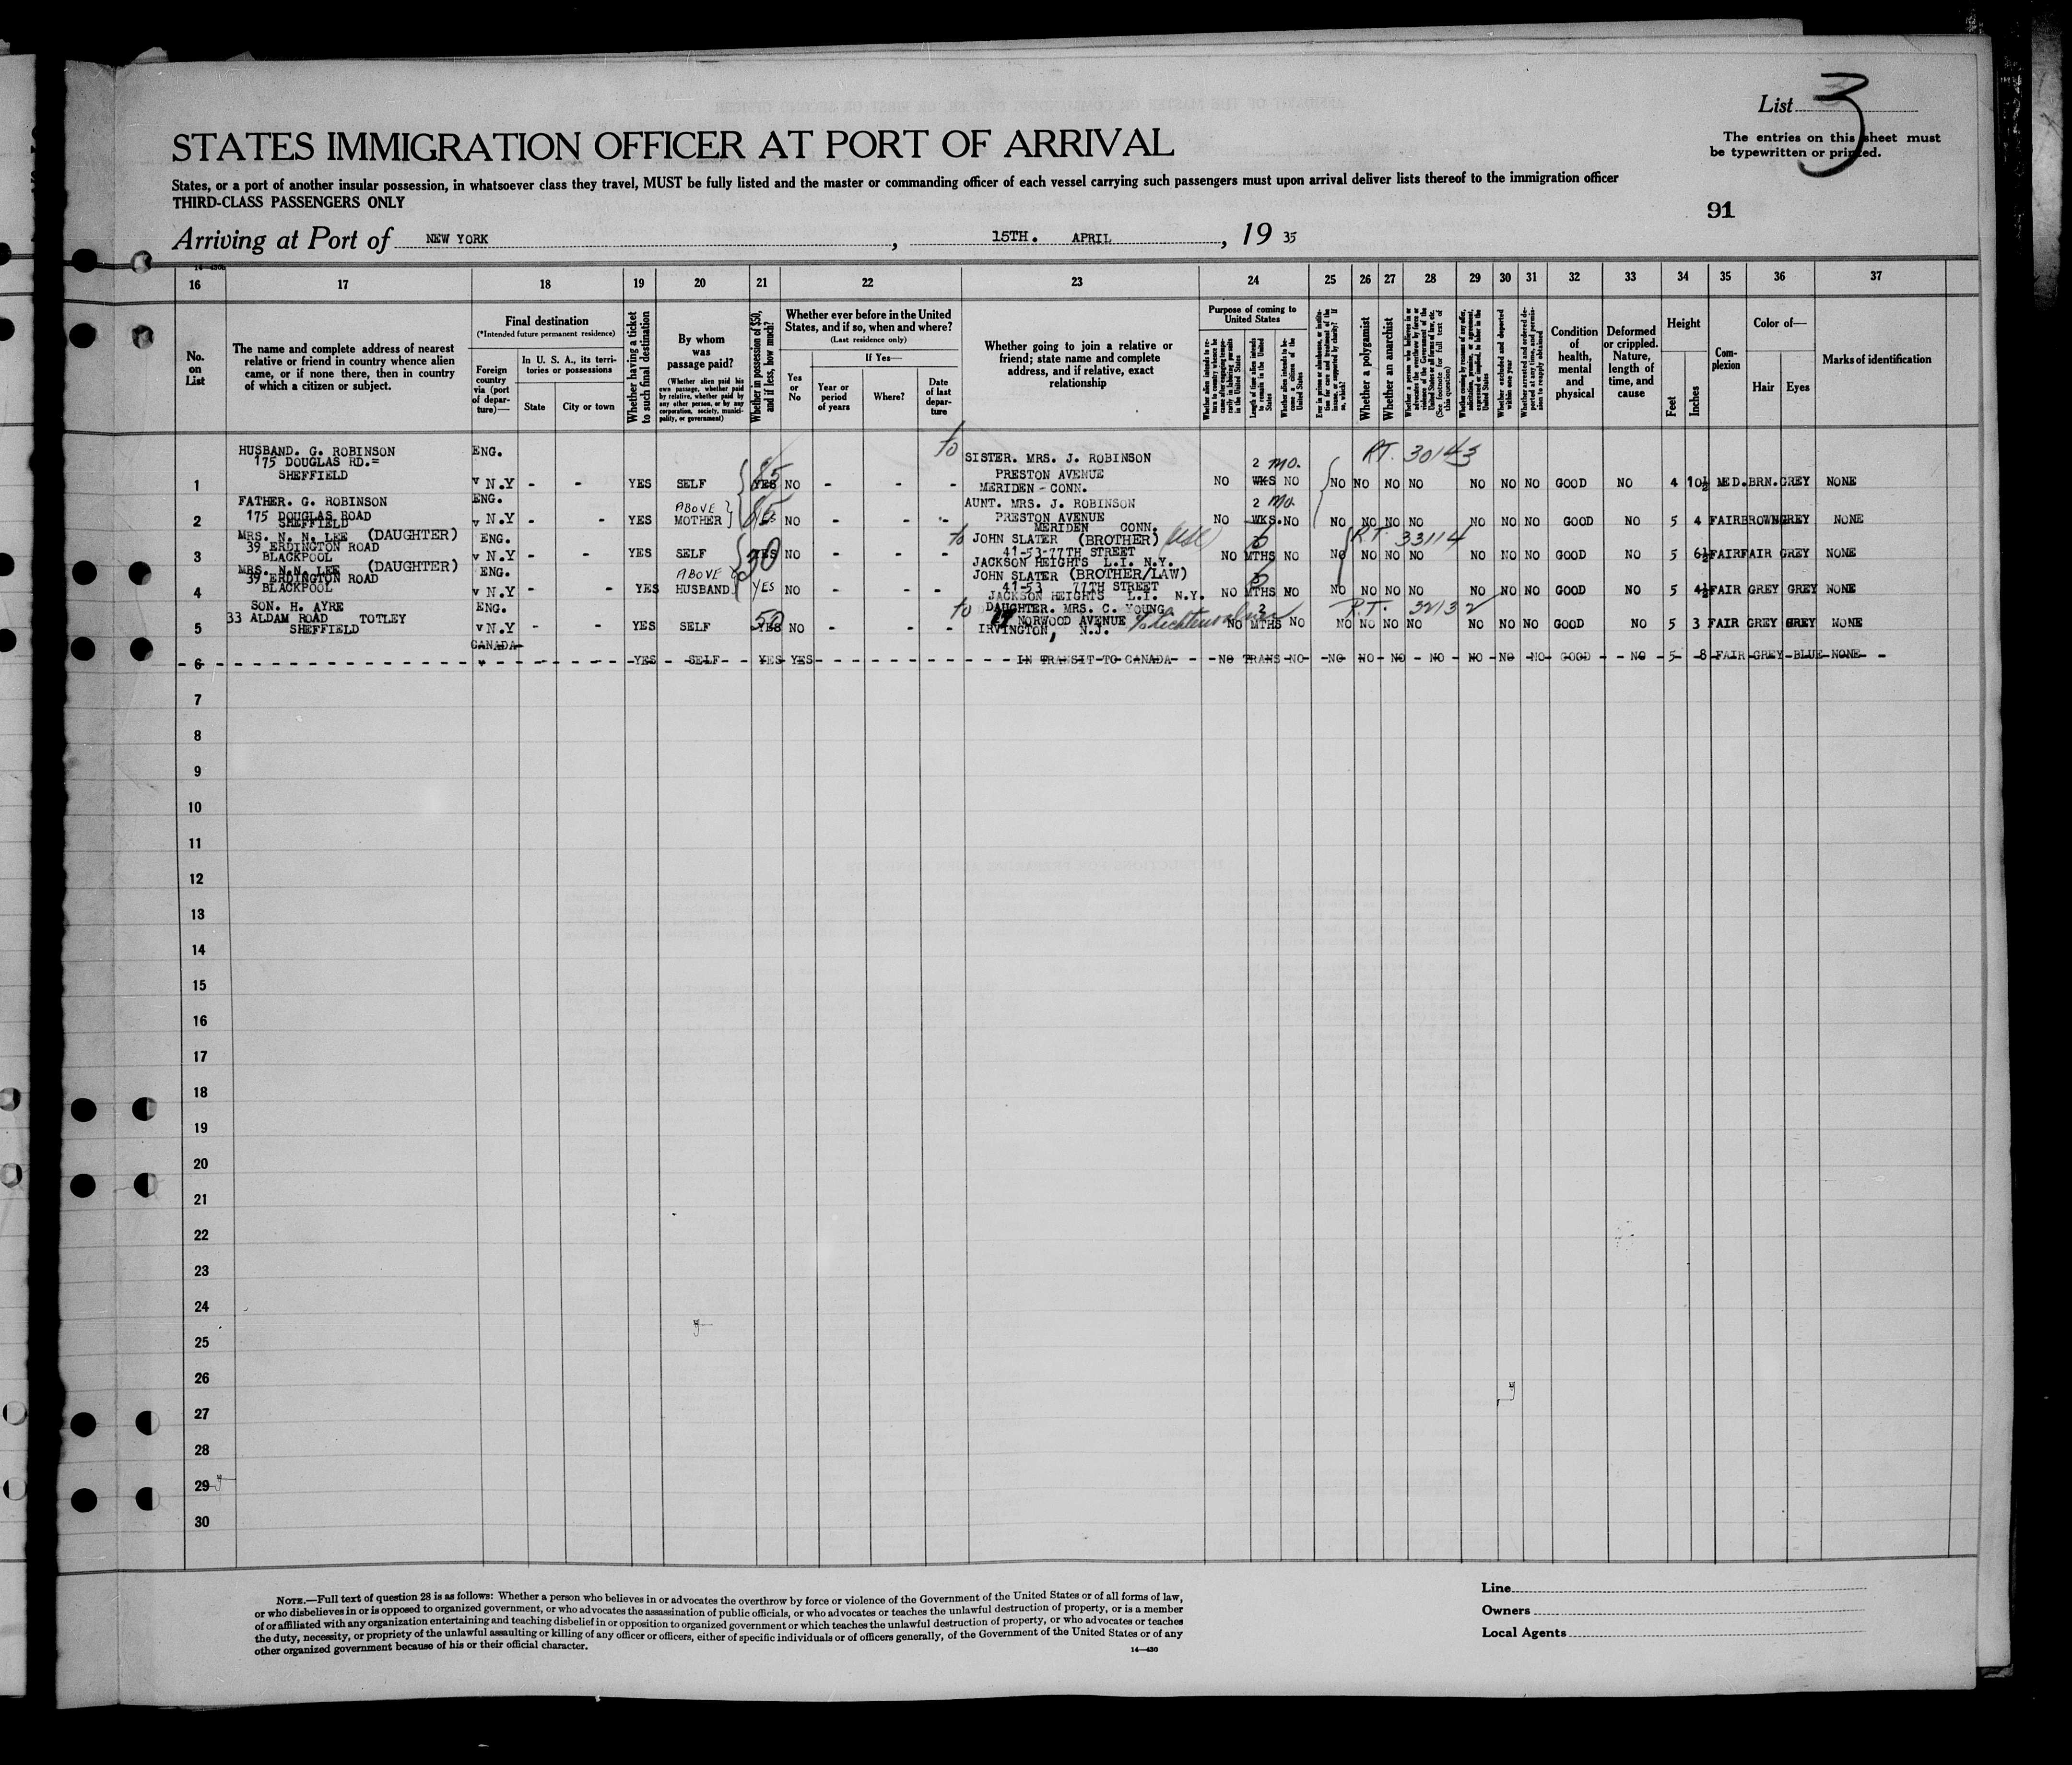 List 3
The entries on this sheet must
be typewritten or printed.
STATES IMMIGRATION OFFICER AT PORT OF ARRIVAL
States, or a port of another insular possession, in whatsoever class they travel, MUST be fully listed and the master or commanding officer of each vessel carrying such passengers must upon arrival deliver lists thereof to the immigration officer
THIRD-CLASS PASSENGERS ONLY
91
Arriving at Port of NEW YORK, 15TH. APRIL, 19 35
16 17 18 19 20 21 22 23 24 25 26 27 28 29 30 31 32 33 34 35 36 37
No. on List
The name and complete address of nearest
relative or friend in country whence alien
came, or if none there, then in country
of which a citizen or subject.
Final destination
(*Intended future permanent residence)
Foreign country via (port of departure)—
In U. S. A., its territories or possessions
State
City or town
Whether having a ticket to such final destination
By whom was passage paid?
(Whether alien paid his own passage, whether paid by relative, whether paid by any other person, or by any corporation, society, municipality, or government)
Whether in possession of $50, and if less, how much?
Whether ever before in the United States, and if so, when and where?
(Last residence only)
Yes or No
If Yes—
Year or period of years
Where?
Date of last departure
Whether going to join a relative or
friend; state name and complete
address, and if relative, exact
relationship
Purpose of coming to United States
Length of time alien intends to remain in the United States
Whether alien intends to become a citizen of the United States
Whether a polygamist
Whether an anarchist
(See footnote for full text of this question)
Whether excluded and deported within one year
Condition of health, mental and physical
Deformed or crippled. Nature, length of time, and cause
Height
Feet
Inches
Complexion
Color of—
Hair
Eyes
Marks of identification
HUSBAND. G. ROBINSON ENG. to SISTER. MRS. J. ROBINSON 2 mo. RT. 30143
175 DOUGLAS RD.= PRESTON AVENUE
1 SHEFFIELD v N.Y - - YES SELF YES 85 NO - - - MERIDEN - CONN. NO WKS NO NO NO NO NO NO NO NO GOOD NO 4 10½ MED. BRN. GREY NONE
FATHER. G. ROBINSON ENG. AUNT. MRS. J. ROBINSON 2 mo.
175 DOUGLAS ROAD ABOVE PRESTON AVENUE
2 SHEFFIELD v N.Y - - YES MOTHER NO - - - MERIDEN CONN. NO WKS. NO NO NO NO NO NO NO NO GOOD NO 5 4 FAIR BROWN GREY NONE
MRS. N. N. LEE (DAUGHTER) ENG. to JOHN SLATER (BROTHER) RT. 33114
39 ERDINGTON ROAD 41-53-77TH STREET
3 BLACKPOOL v N.Y - - YES SELF YES 50 NO - - - JACKSON HEIGHTS L.I. N.Y. NO 6 MTHS NO NO NO NO NO NO NO NO GOOD NO 5 6½ FAIR FAIR GREY NONE
MRS. N.N. LEE (DAUGHTER) ENG. JOHN SLATER (BROTHER/LAW)
39 ERDINGTON ROAD ABOVE 41-53 77TH STREET
4 BLACKPOOL v N.Y - - YES HUSBAND YES NO - - - JACKSON HEIGHTS L.I. N.Y. NO 6 MTHS NO NO NO NO NO NO NO NO GOOD NO 5 4½ FAIR GREY GREY NONE
SON. H. AYRE ENG. to DAUGHTER. MRS. C. YOUNG 2 R.T. 32132
33 ALDAM ROAD TOTLEY NORWOOD AVENUE
5 SHEFFIELD v N.Y - - YES SELF YES 50 NO - - - IRVINGTON, N.J. NO MTHS NO NO NO NO NO NO NO NO GOOD NO 5 3 FAIR GREY GREY NONE
CANADA
6 v - - YES SELF YES YES - - - IN TRANSIT TO CANADA NO TRANS NO NO NO NO NO NO NO NO GOOD NO 5 8 FAIR GREY BLUE NONE
7
8
9
10
11
12
13
14
15
16
17
18
19
20
21
22
23
24
25
26
27
28
29
30
NOTE.—Full text of question 28 is as follows: Whether a person who believes in or advocates the overthrow by force or violence of the Government of the United States or of all forms of law,
or who disbelieves in or is opposed to organized government, or who advocates the assassination of public officials, or who advocates or teaches the unlawful destruction of property, or is a member
of or affiliated with any organization entertaining and teaching disbelief in or opposition to organized government or which teaches the unlawful destruction of property, or who advocates or teaches
the duty, necessity, or propriety of the unlawful assaulting or killing of any officer or officers, either of specific individuals or of officers generally, of the Government of the United States or of any
other organized government because of his or their official character.
14—430
Line
Owners
Local Agents